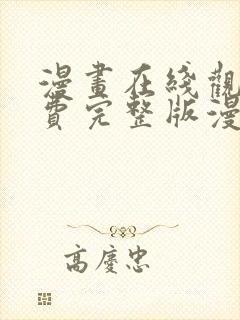 漫畫在綫觀
費完整版漫
高慶忠